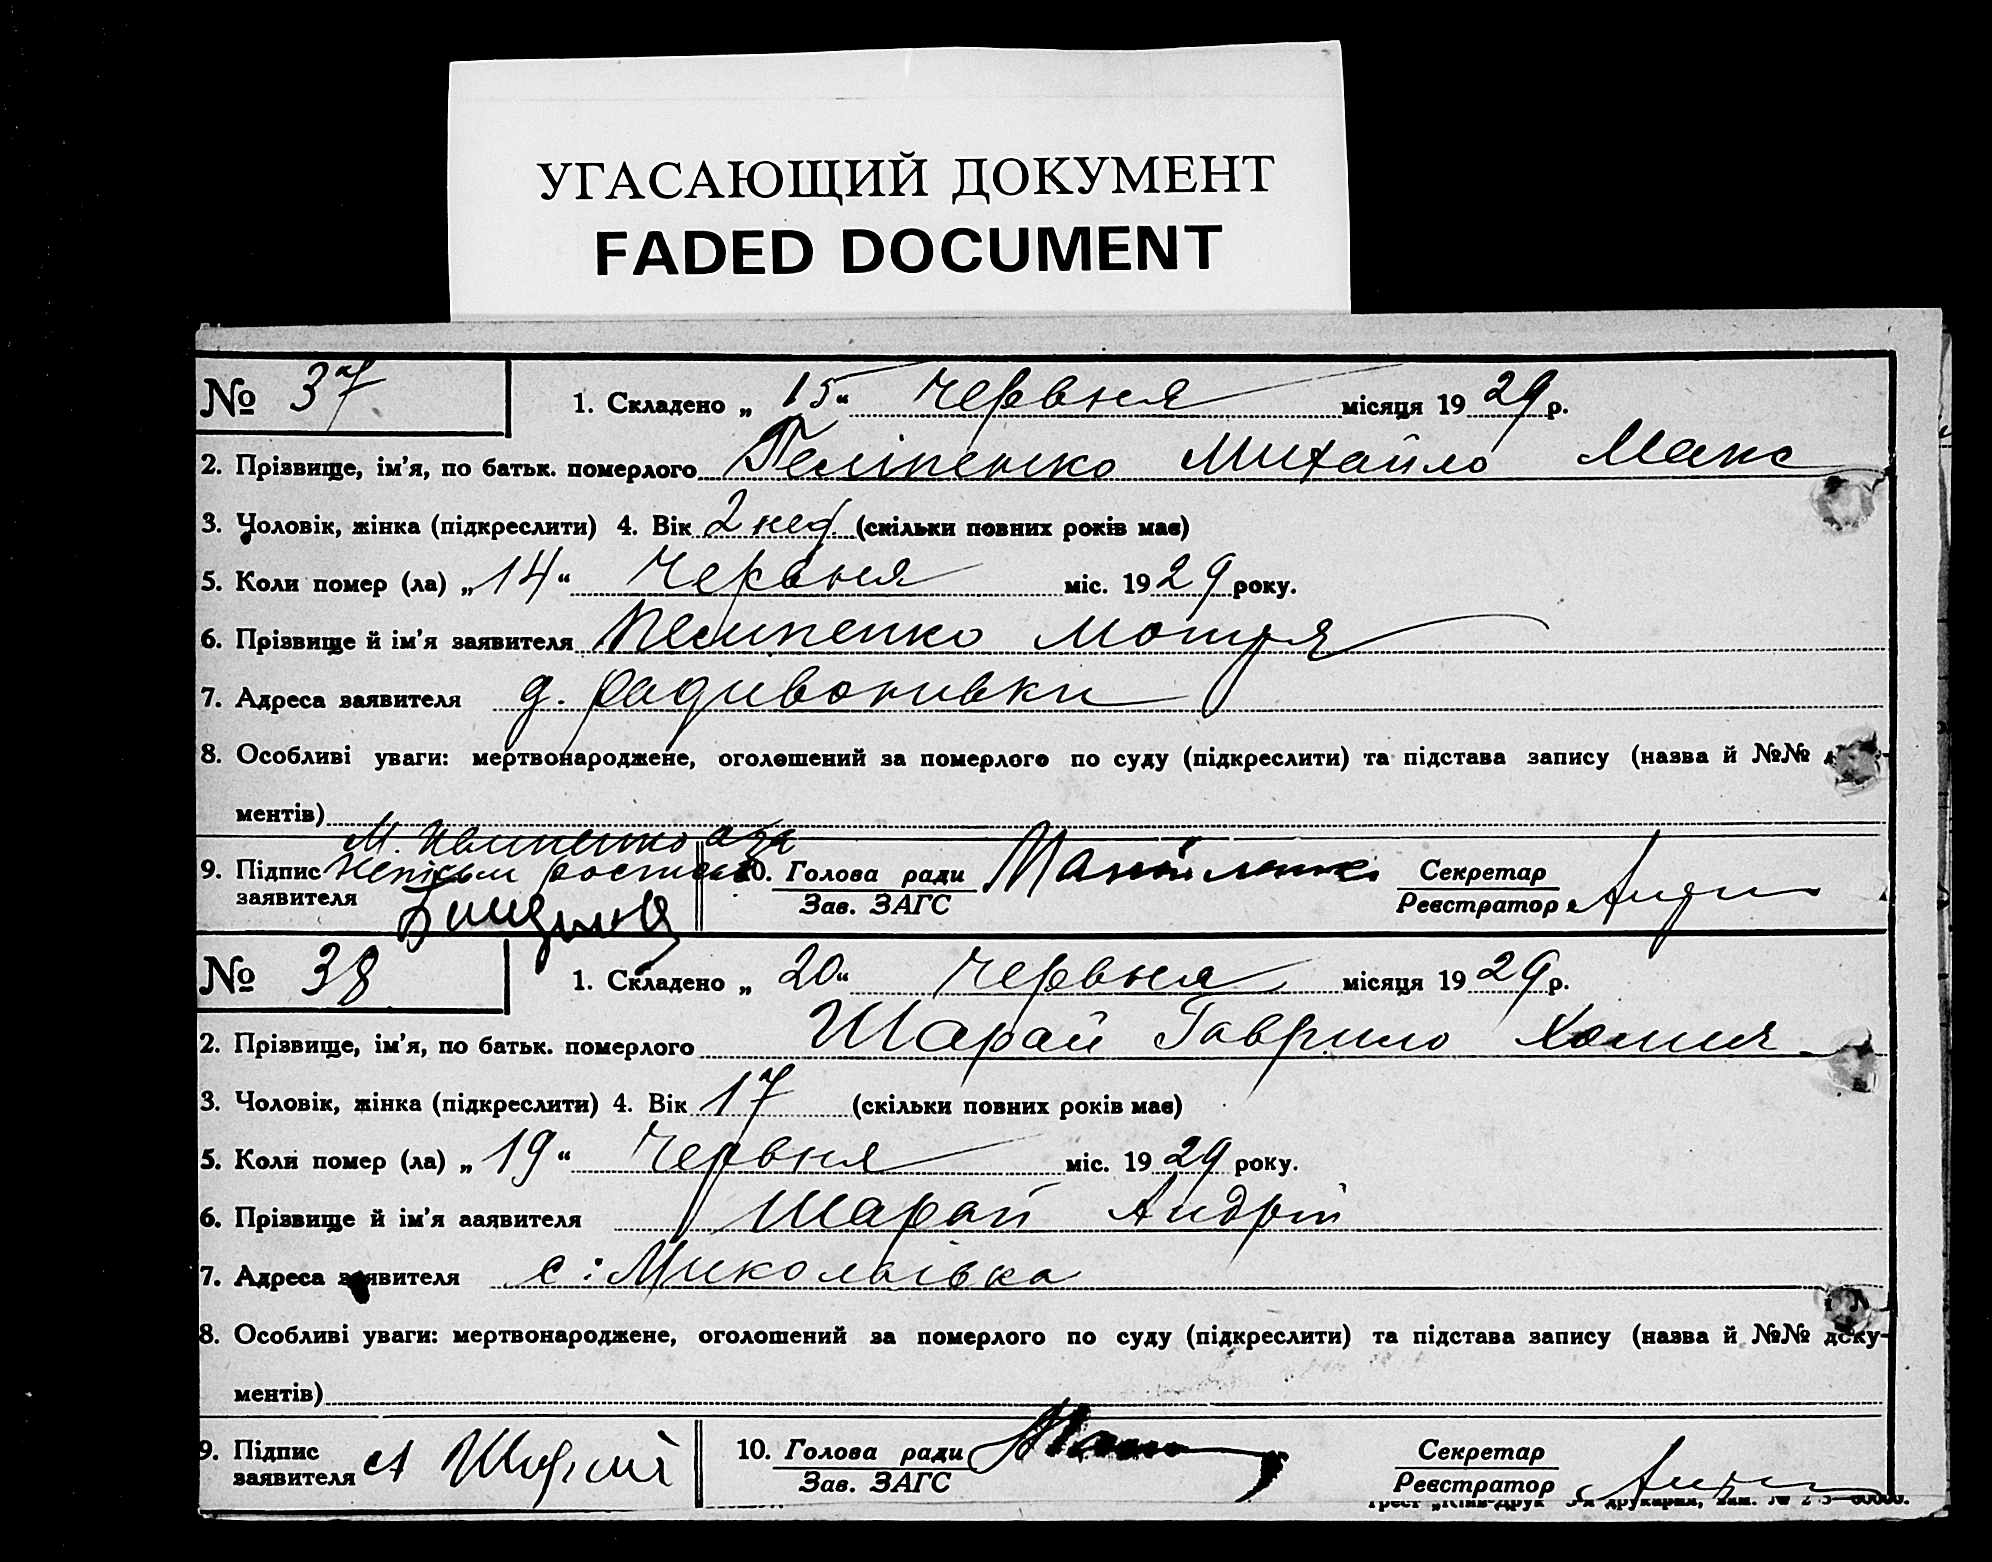 УГАСАЮЩИЙ ДОКУМЕНТ
FADED DOCUMENT
№ 37 1. Складено „ 15“ червня місяця 1929 р.
2. Прізвище, ім'я, по батьк. померлого Михайло Макс
3. Чоловік, жінка (підкреслити) 4. Вік 2 нед. (скільки повних років має)
5. Коли помер (ла) „ 14“ Червня міс. 1929 року.
6. Прізвище й ім'я заявителя Мотря
7. Адреса заявителя д. Радивонивки
8. Особливі уваги: мертвонароджене, оголошений за померлого по суду (підкреслити) та підстава запису (назва й №№
ментів)
М. а за
9. Підпис заявителя 10. Голова ради Зав. ЗАГС Секретар Реєстратор
№ 38 1. Складено „ 20“ Червня місяця 1929 р.
2. Прізвище, ім'я, по батьк. померлого Шарай Гаврило Хомич
3. Чоловік, жінка (підкреслити) 4. Вік 17 (скільки повних років має)
5. Коли помер (ла) „ 19“ Червня міс. 1929 року.
6. Прізвище й ім'я ааявителя Шарай Андрій
7. Адреса заявителя с: Миколаівка
8. Особливі уваги: мертвонароджене, оголошений за померлого по суду (підкреслити) та підстава запису (назва й №№ доку-
ментів)
9. Підпис заявителя А 10. Голова ради Зав. ЗАГС Секретар Реєстратор